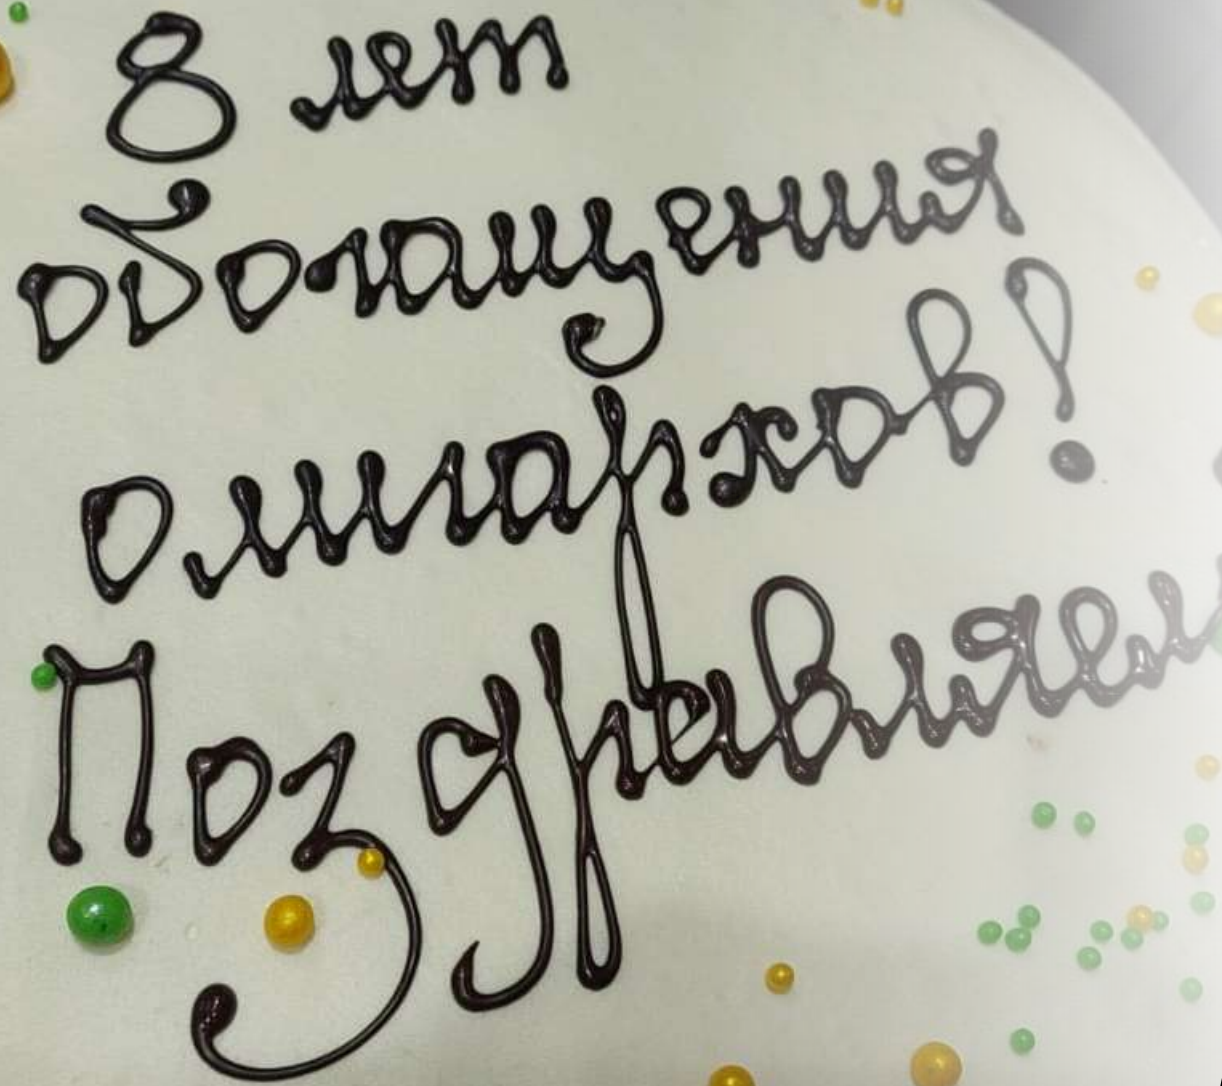 8 лет
обогащения
олигархов!
Поздравляем